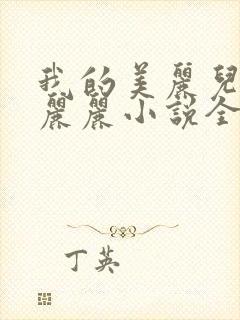 我的美麗兒
麗麗小說全
丁英